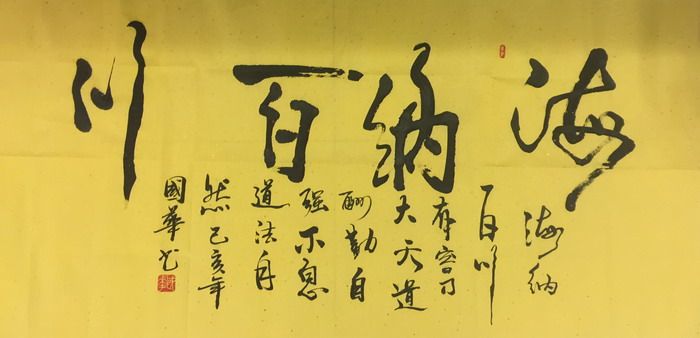 海纳百川
海纳
百川
有容乃
大天道
酬勤自
强不息
道法自
然己亥年
國華书